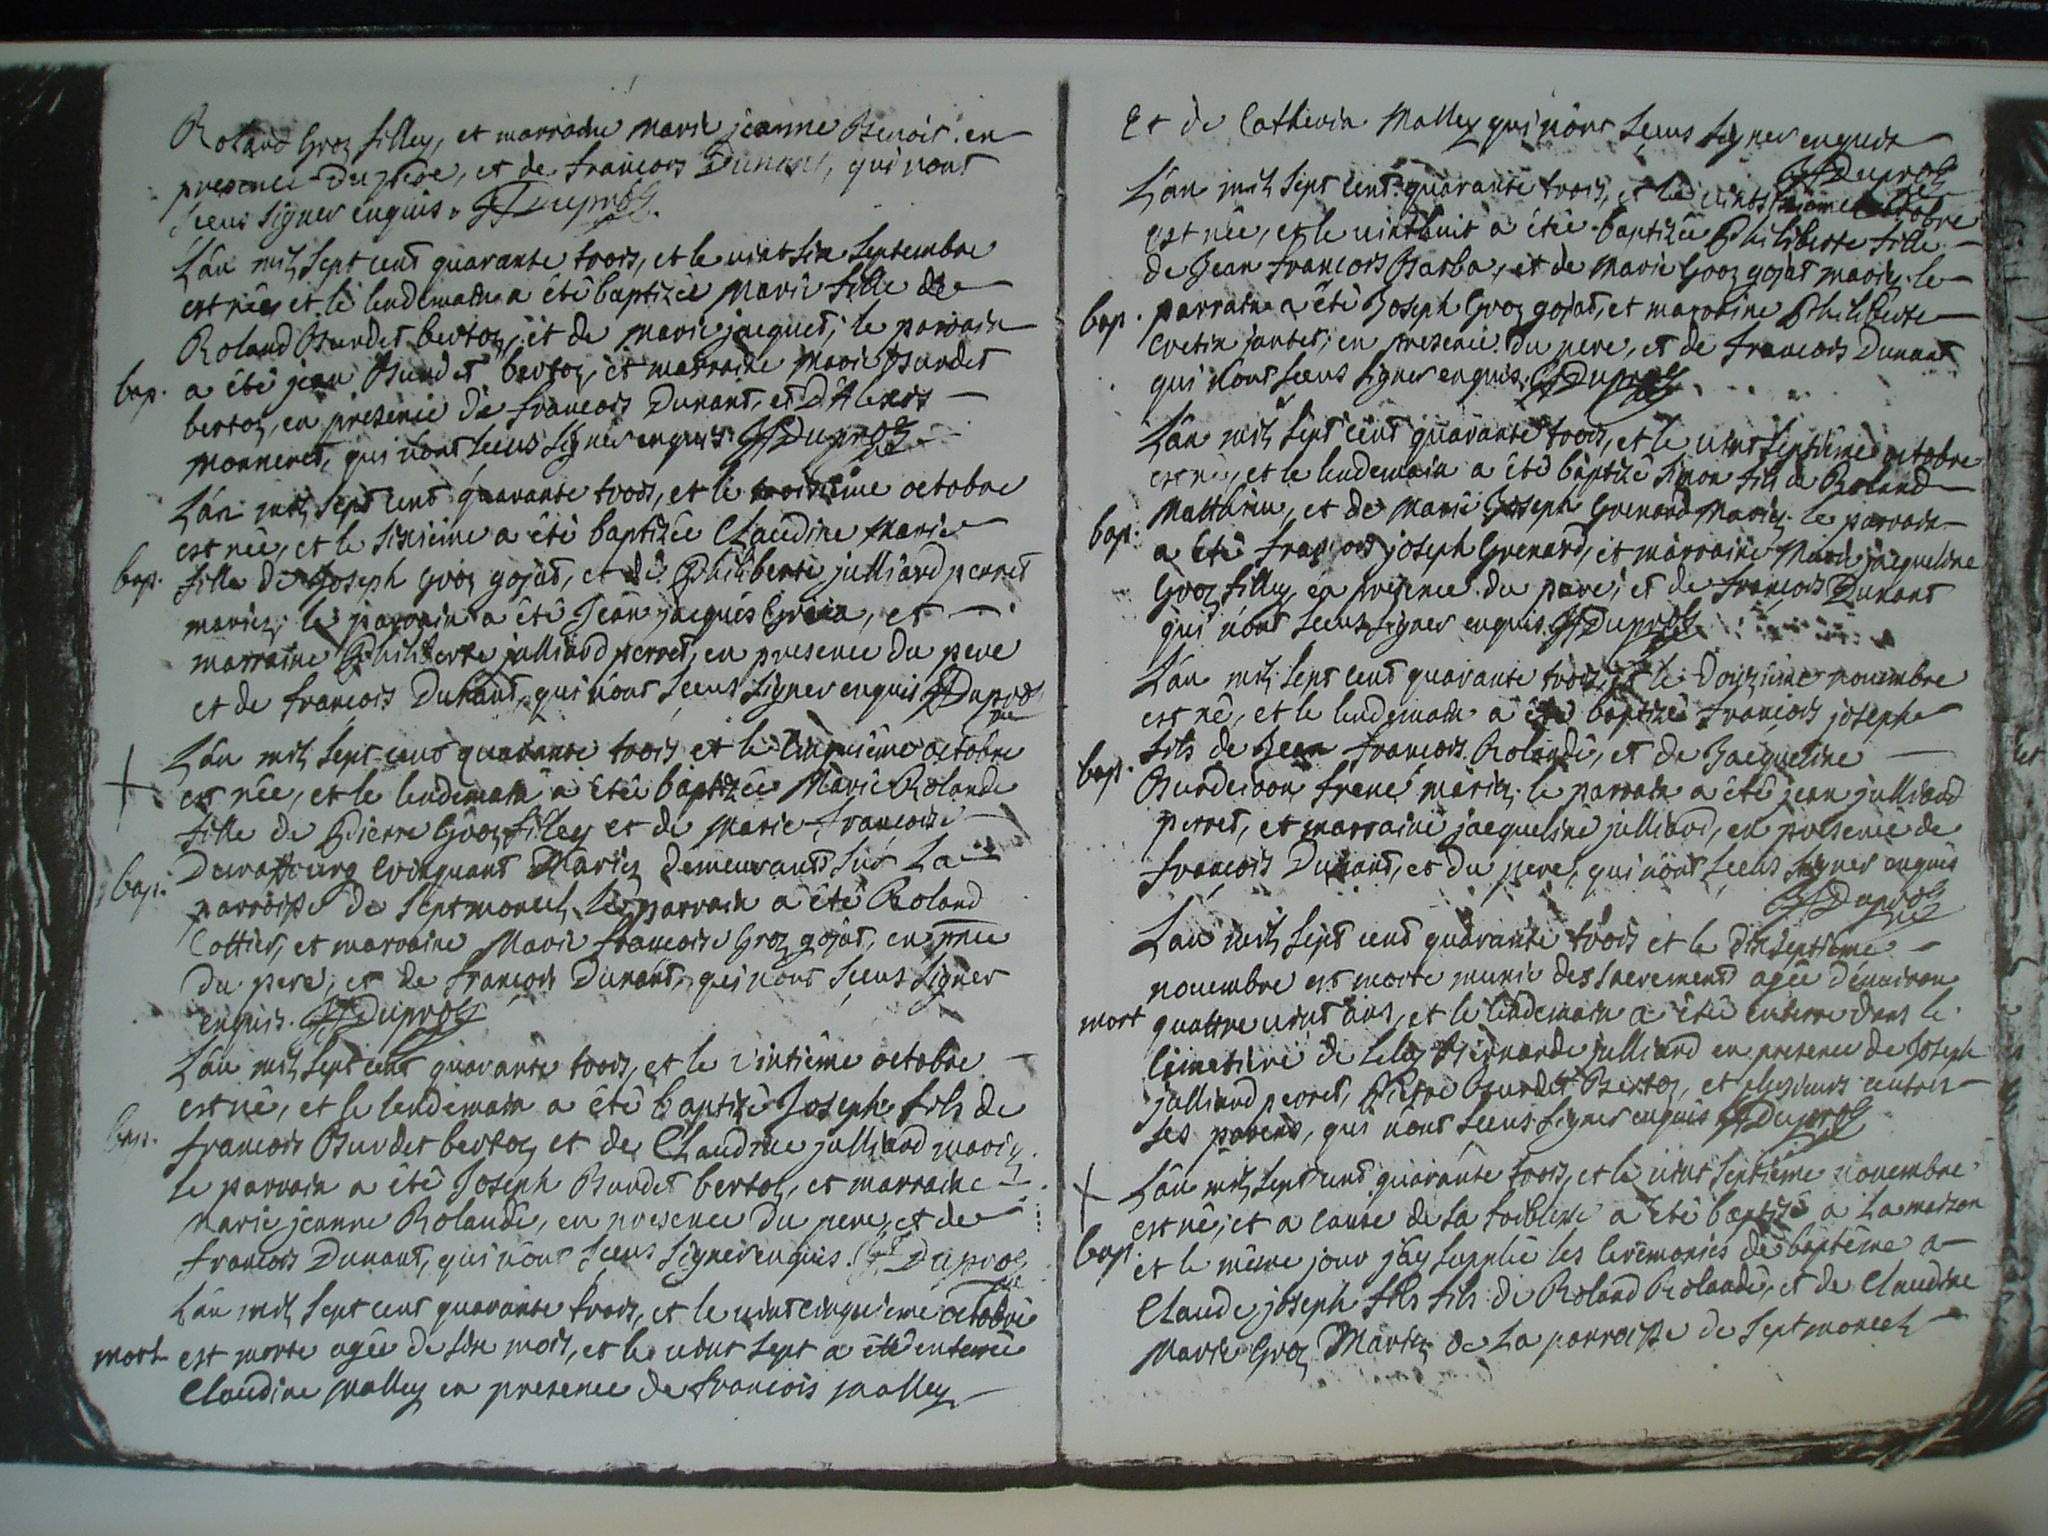 Roland Groz filley, et marraine marie jeanne Benoit en
presence du pere, et de francois Dunant, qui nont
sceus signer enquis. JfDuproz
L'an mil sept cent quarante trois, et le vint six septembre
est née, et le lendemain a été baptizée marie fille de
Roland Burdet bertoz, et de marie jacquet; le parrain
bap. a été jean Burdet bertoz, et marraine marie Burdet
bertoz, en presence de francois Dunant, et d'Alexis
monneret, qui n'ont sceus signer enquis JfDuproz
L'an mil sept cent quarante trois, et le troisième octobre
est née, et le sixième a été baptizée Claudine marie
bap. fille de Joseph Groz gojat, et de Philiberte julliard perret
mariez; le parrain a été Jean jacques Grein, et
marraine Philiberte julliard perret, en presence du pere
et de francois Dunant, qui n'ont sceus signer enquis JfDuproz
L'an mil sept cent quarante trois et le cinquième octobre
est née, et le lendemain a été baptizée Marie Rolande
fille de Pierre Groz filley et de marie francoise
Duraffourg Crinquant Mariez demeurants sur La
bap. parroisse de septmoncel, le parrain a été Roland
Cottier, et marraine Marie francoise Groz gojat, en pnce
du pere, et de francois Dunant, qui nont sceus signer
enquis. JfDuproz
L'an mil sept cent quarante trois, et le vintième octobre
est né, et le lendemain a été baptizé Joseph fils de
bap. francois Burdet bertoz et de Claudine julliard mariez
le parrain a été Joseph Burdet bertoz, et marraine
marie jeanne Rolande, en presence du pere, et de
francois Dunant, qui n'ont sceus signer enquis. JfDuproz
L'an mil sept cent quarante trois, et le vint cinquieme octobre
mort est morte agée de six mois, et le vint sept a été enterrée
Claudine malley en presence de francois malley
Et de Catherin Malley qui n'ont sceus signer enquist
JfDuproz
L'an mil sept cent quarante trois, et le octobre
est née, et le vinthuit a étée baptizée Philiberte fille
de Jean francois Barba, et de marie Groz gojat mariez. le
bap. parrain a été Joseph Groz gojat, et marraine Philiberte
Cretin jantet; en presence du pere, et de francois Dunant
qui n'ont sceus signer enquis. JfDuproz
L'an mil sept cent quarante trois, et le vint septième octobre
est né, et le lendemain a été baptizé simon fils de Roland
Matthieu, et de marie Joseph Grenard Mariez. le parrain
bap. a été francois joseph Grenard, et marraine Marie jacqueline
Groz filley en presence du pere, et de francois Dunant
qui n'ont sceus signer enquis JfDuproz
L'an mil sept cent quarante trois, et le douzième novembre
est né, et le lendemain a été baptizé francois joseph
fils de Jean francois Rolande, et de Jacqueline
bap. mariez. le parrain a été jean julliard
perret, et marraine jacqueline julliard, en presence de
francois Dunant, et du pere, qui n'ont sceus signer enquis
JfDuproz
L'an mil sept cent quarante trois et le dixseptieme
novembre est morte munie des sacrements agée d'environ
mort quattre vint ans, et le lendemain a été enterré dans le
Cimetière de Bernarde julliard en presence de Joseph
julliard perret, Burdet Bertoz, et plusieurs autres
ses parens, qui nont sceus signer enquis JfDuproz
L'an mil sept cent quarante trois, et le vint septième novembre
est né, et a cause de sa foiblesse a été baptizé a La maison
bap. et le même jour j'ay supplié les ceremonies de baptême a
Claude joseph fils fils de Roland Rolande, et de Claudine
Marie Groz Mariez de La parroisse de septmoncel